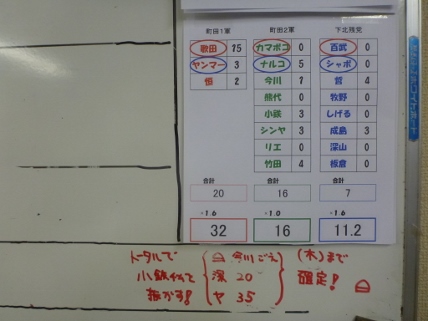 町田1軍 町田2軍 下北独党
歌田 15 カマボコ 0 百武 0
ヤンマー 3 ナルコ 5 シャボ 0
恒 2 今川 1 菅 4
熊代 0 牧野 0
小鉄 3 しげる 0
シンヤ 3 成島 3
リエ 0 深山 0
竹田 4 板倉 0
合計 合計 合計
20 16 7
×1.6 ×1.0 ×1.6
32 16 11.2
トータルで 今川ごえ (木)まで
深 20 確定!
ヤ 35